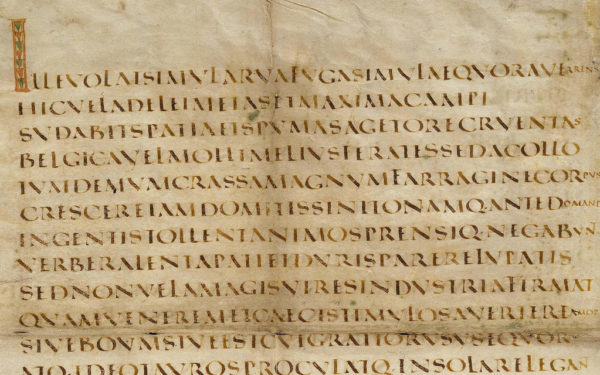 ILLEVOLATSIMVLARVAFVGASIMVLAEQVORAVERRENS
HICVELADELEIMETASETMAXIMACAMPI
SVDABITSPATIAETSPVMASAGETORECRVENTAS
BELGICAVELMOLLIMELIVSFERATESSEDACOLLO
TVMDEMVMCRASSAMAGNVMFARRAGINECORPVS
CRESCEREIAMDOMITISSINITONAMQ·ANTEDOMAND
INGENTISTOLLENTANIMOSPRENSIQ·NEGABVÑ
VERBERALENTAPATIETDVRISPARERELVPATIS
SEDNONVLLAMAGISVIRESINDVSTRIAFIRMAT
QVAMVENEREMETCAECISTIMVLOSAVERTEREAMOR
SIVEBOVMSIVEESTCVIGRATIORVSVSEQVOR
ATQ·IDEOTAVROSPROCVLATQ·INSOLARELEGAÑ